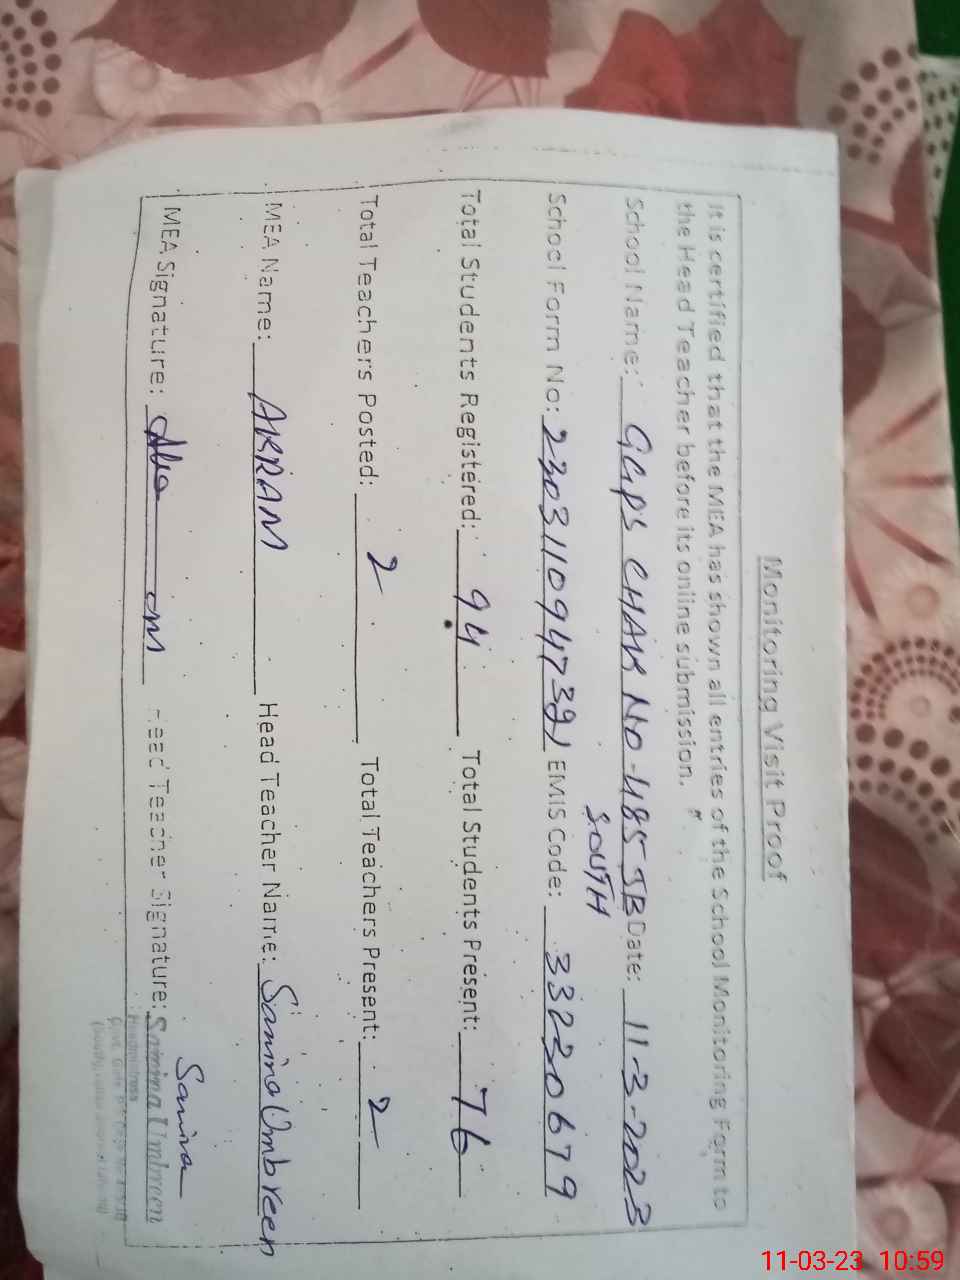 Monitoring Visit Proof
It is certified that the MEA has shown all entries of the School Monitoring Form to
the Head Teacher before its online submission.
School Name: GGPS CHAK NO-485 JB Date: 11-3-2023
SOUTH
School Form No: EMIS Code: 33220679
Total Students Registered: 94 Total Students Present: 76
Total Teachers Posted: 2 Total Teachers Present: 2
MEA Name: AKRAM Head Teacher Name: Samina Umbreen
MEA Signature: Head Teacher Signature: Samina Umbreen
Samina
Headmistress
11-03-23 10:59